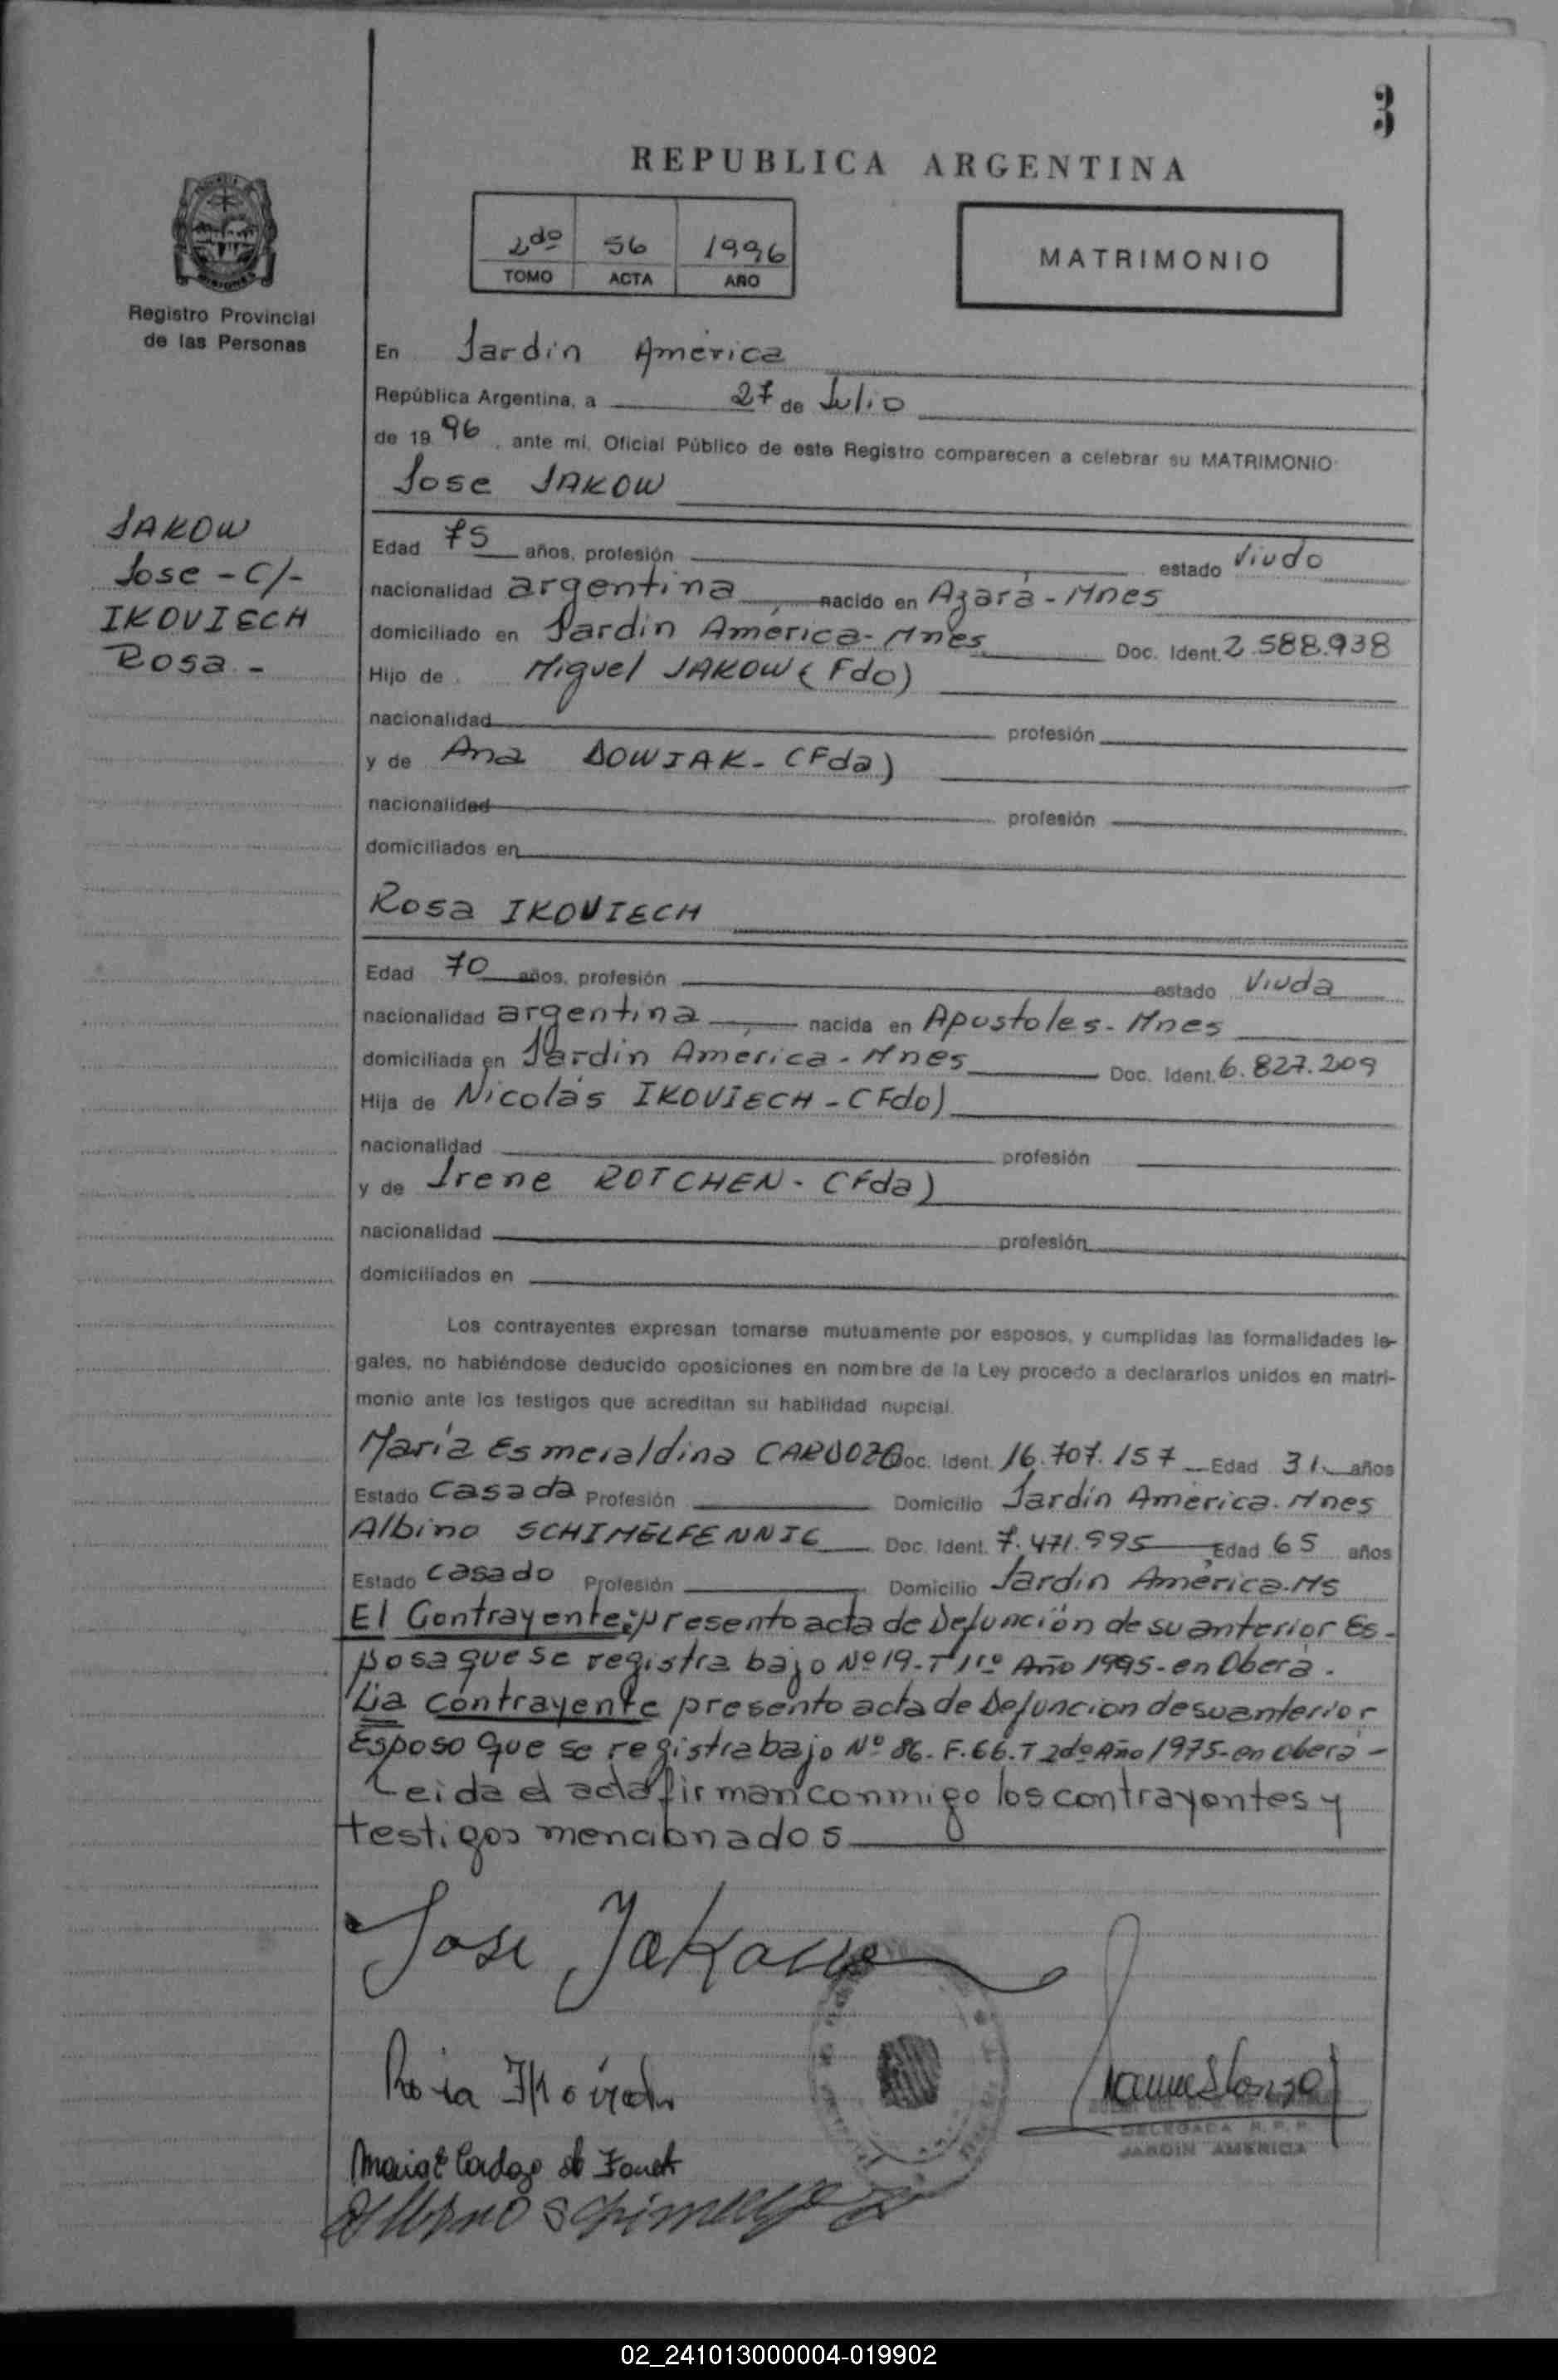 3
REPUBLICA ARGENTINA
2do 56 1996
TOMO ACTA AÑO
MATRIMONIO
Registro Provincial
de las Personas
En Jardín América
República Argentina, a 27 de Julio
de 19 96, ante mí, Oficial Público de este Registro comparecen a celebrar su MATRIMONIO:
Jose JAKOW
JAKOW
Jose - C/-
IKOVIECH
Rosa -
Edad 75 años, profesión estado Viudo
nacionalidad argentina nacido en Azará - Mnes
domiciliado en Jardín América - Mnes Doc. Ident. 2.588.938
Hijo de Miguel JAKOW (Fdo)
nacionalidad profesión
y de Ana DOWIAK - (Fda)
nacionalidad profesión
domiciliados en
Rosa IKOVIECH
Edad 70 años, profesión estado Viuda
nacionalidad argentina nacida en Apostoles - Mnes
domiciliada en Jardín América - Mnes Doc. Ident. 6.827.209
Hija de Nicolás IKOVIECH - (Fdo)
nacionalidad profesión
y de Irene ROTCHEN - (Fda)
nacionalidad profesión
domiciliados en
Los contrayentes expresan tomarse mutuamente por esposos, y cumplidas las formalidades le-
gales, no habiéndose deducido oposiciones en nombre de la Ley procedo a declararlos unidos en matri-
monio ante los testigos que acreditan su habilidad nupcial.
María Esmeraldina CARDOZO Doc. Ident. 16.707.157 Edad 31 años
Estado Casada Profesión Domicilio Jardín América - Mnes
Albino SCHIMELFENNIG Doc. Ident. 7.471.995 Edad 65 años
Estado Casado Profesión Domicilio Jardín América - Ms
El Contrayente: presento acta de Defunción de su anterior Es-
posa que se registra bajo Nº 19 - T 1ro Año 1995 - en Oberá.
La contrayente presento acta de Defuncion de su anterior
Esposo que se registra bajo Nº 86 - F. 66. T 2do Año 1975 - en Oberá -
Leida el acta firman conmigo los contrayentes y
testigos mencionados
Jose Jakow
Rosa Ikoviech
Maria E Cardozo de
Albino
DELEGADA R. P. P.
JARDIN AMERICA
02_241013000004-019902